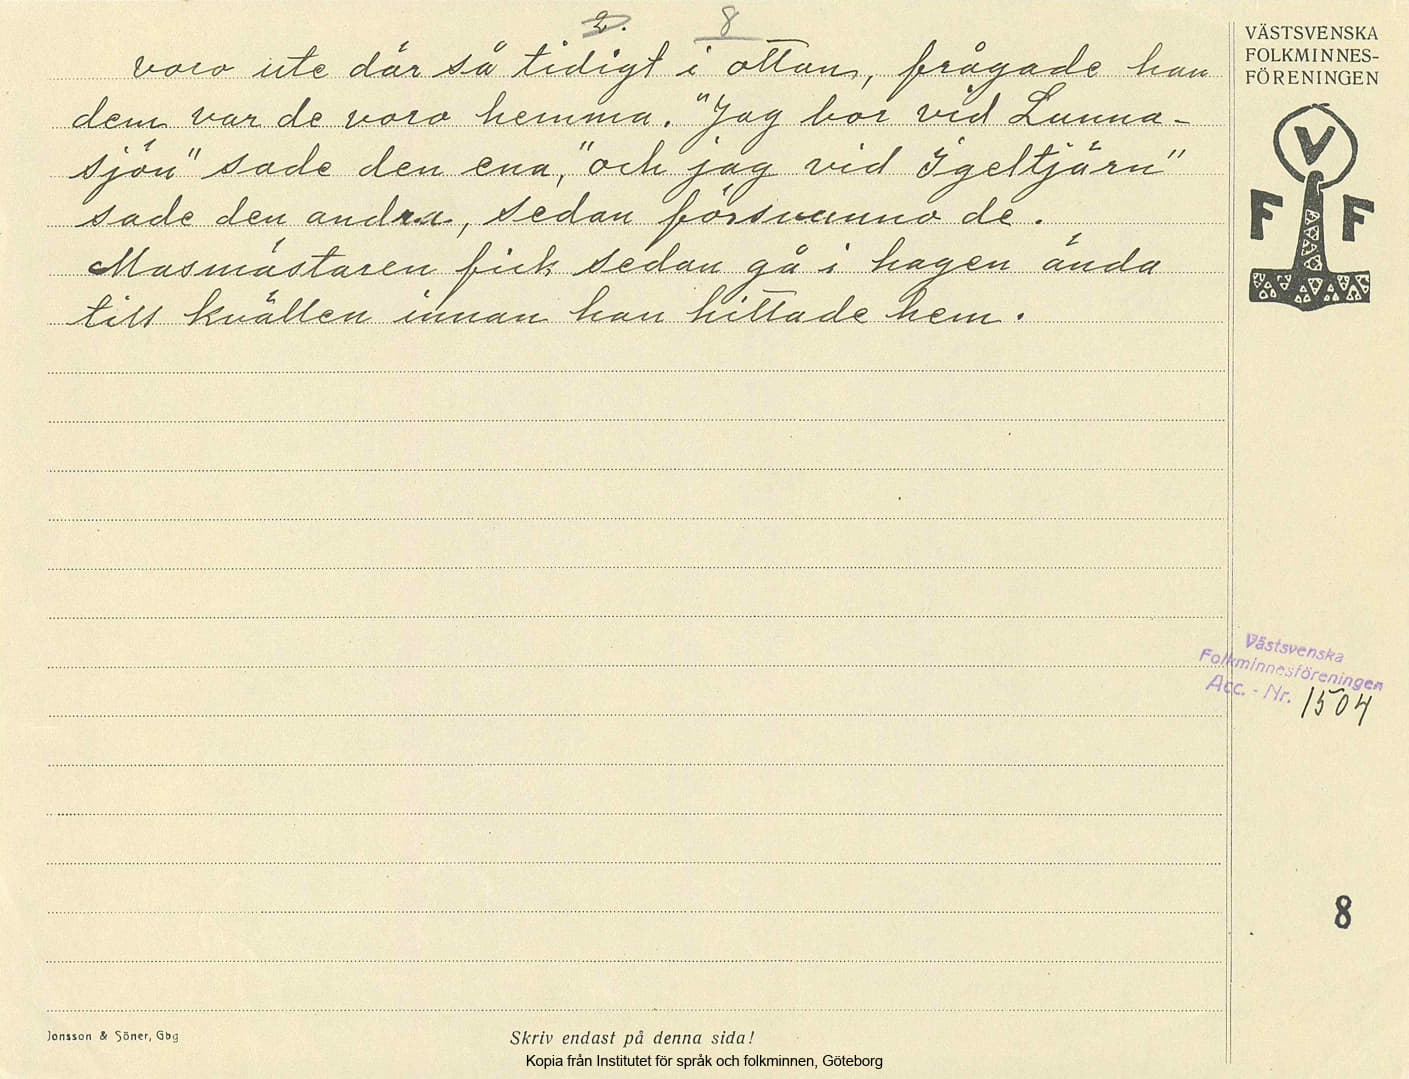 2. 8
voro ute där så tidigt i ottan, frågade han
dem var de voro hemma. "Jag bor vid Lunna-
sjön" sade den ena, "och jag vid Igeltjärn"
sade den andra, sedan försvunno de.
Masmästaren fick sedan gå i hagen ända
till kvällen innan han hittade hem.
VÄSTSVENSKA
FOLKMINNES-
FÖRENINGEN
V
F F
Västsvenska
Folkminnesföreningen
Acc. - Nr. 1504
8
Jonsson & Söner, Gbg
Skriv endast på denna sida!
Kopia från Institutet för språk och folkminnen, Göteborg